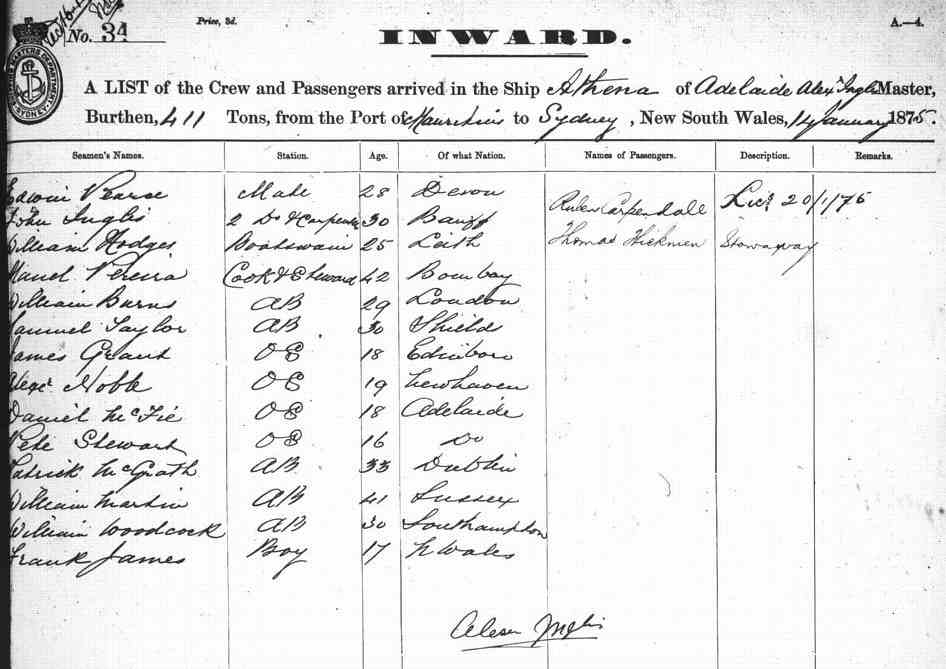 Price, 3d.
A.—4.
No. 34
INWARD.
SYDNEY
A LIST of the Crew and Passengers arrived in the Ship Athena of Adelaide Alexr Inglis Master,
Burthen, 411 Tons, from the Port of Mauritius to Sydney, New South Wales, 14 January 1875.
Seamen's Names. Station. Age. Of what Nation. Names of Passengers. Description. Remarks.
Edwin Pearse Mate 28 Devon Carpendale 20/1/75
John Inglis 2 Do & Carpenter 30 Banff Thomas Hickmen Stowaway
William Hodges Boatswain 25 Leith
Manel Pereira Cook & Steward 42 Bombay
William Burns AB 29 London
Samuel Taylor AB 30 Shields
James Grant OS 18 Edinboro
Alexr Noble OS 19 Newhaven
Daniel McFie OS 18 Adelaide
Pete Stewart OS 16 Do
Patrick McGrath AB 33 Dublin
William Martin AB 41 Sussex
William Woodcock AB 30 Southampton
Frank James Boy 17 N Wales
Inglis